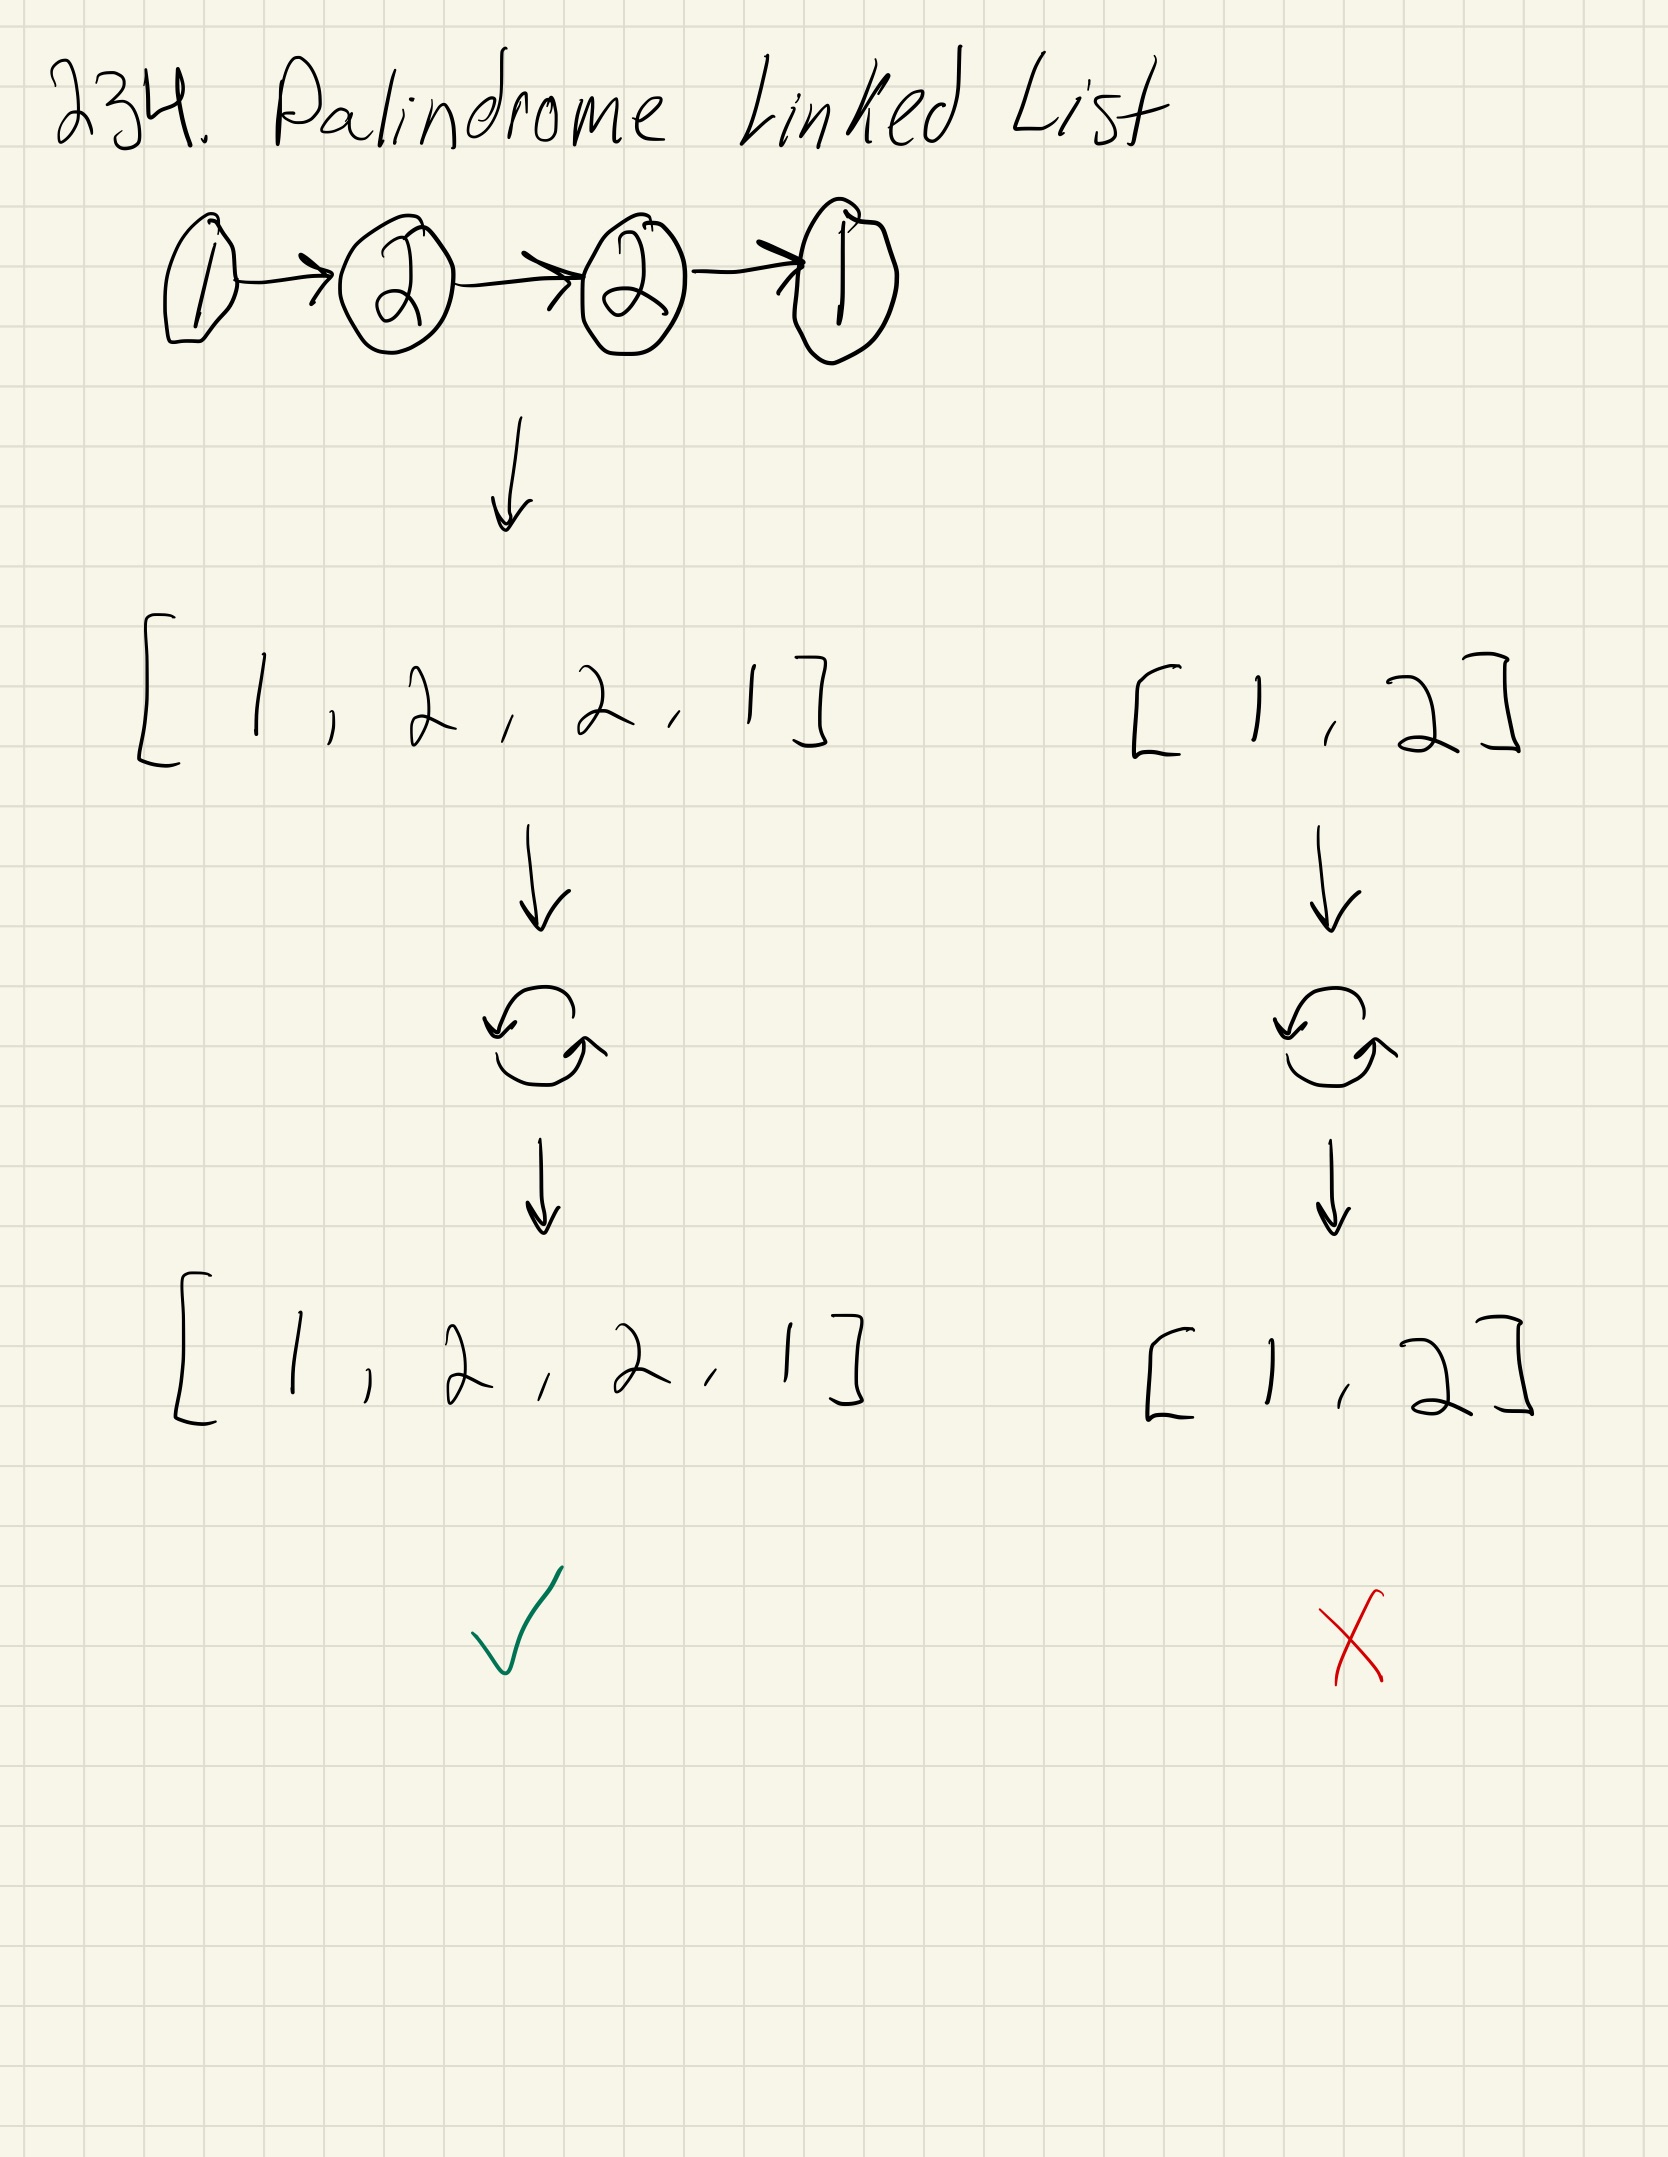 234. Palindrome Linked List
1 2 2 1
[ 1 , 2 , 2 , 1 ] [ 1 , 2 ]
[ 1 , 2 , 2 , 1 ] [ 1 , 2 ]